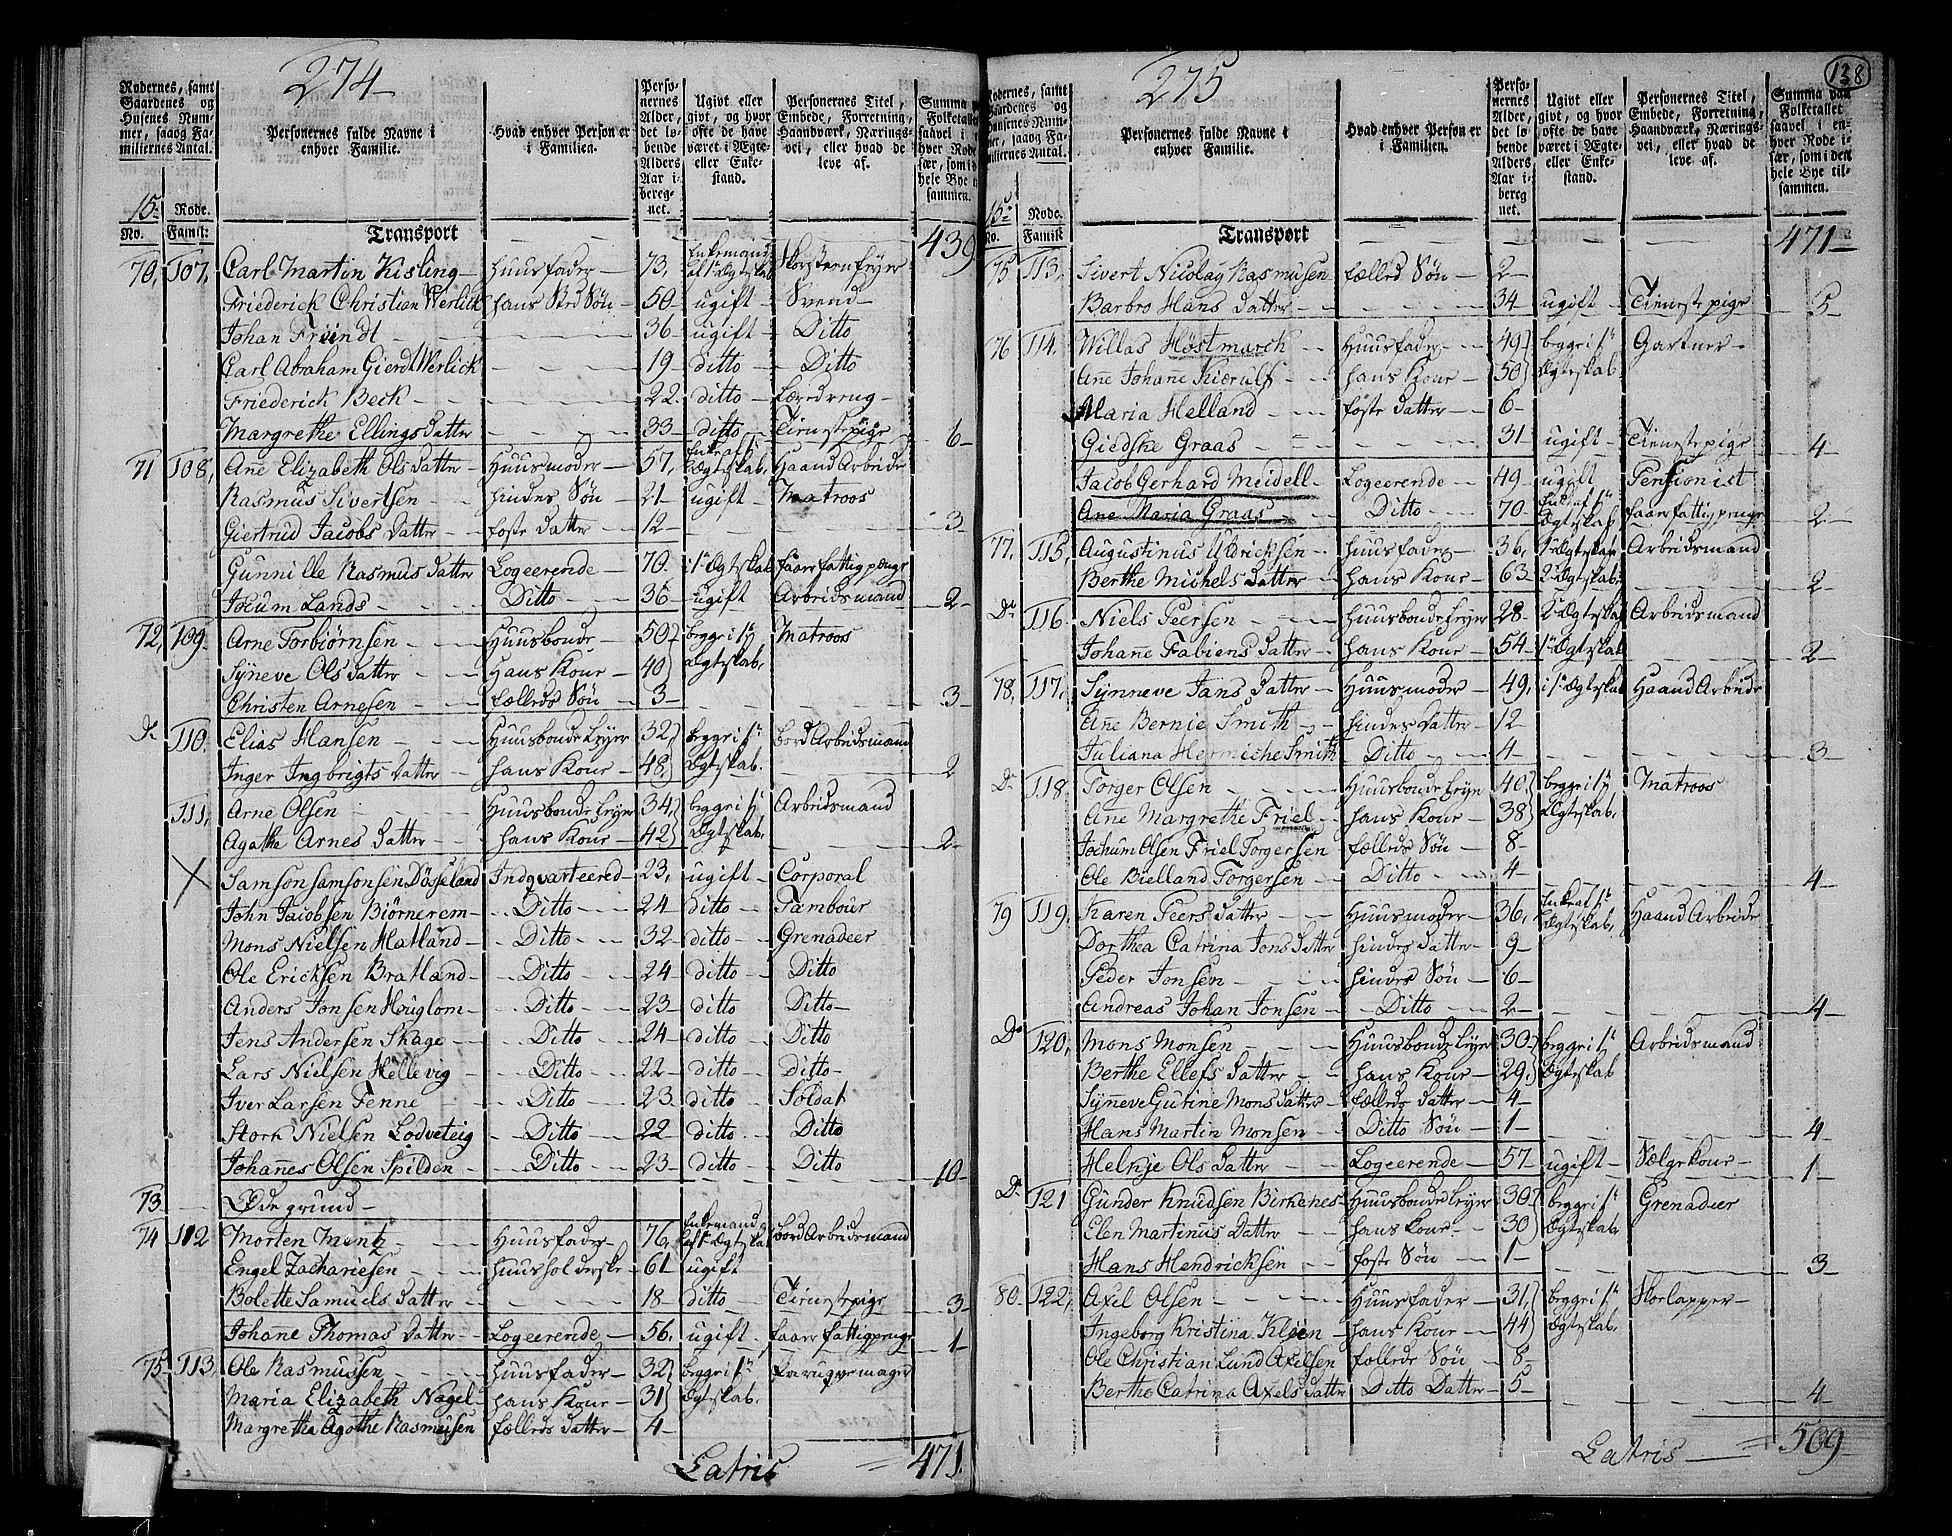 274
Rodernes, samt Gaardenes og Husenes Nummer, saaog Familiernes Antal.
Personernes fulde Navne i enhver Familie.
Hvad enhver Person er i Familien.
Personernes Alder, det løbende Alders Aar iberegnet.
Ugivt eller givt, og hvor ofte de have været i Ægte- eller Enkestand.
Personernes Titel, Embede, Forretning, Haandværk, Næringsvei, eller hvad de leve af.
Summa Folketallet saavel i hver Rode især, som i den hele Bye tilsammen.
15de Rode.
No. Famil:
Transport 439
70, 107, Carl Martin Kisling Huusfader 73, Enkemand af 1te Ægteskab Skorsteenfeyer
Friederich Christian Werlich hans Sted Søn 50 ugift Svend
Johan Friindt 36 ugift Ditto
Carl Abraham Gierdt Werlich 19 ditto Ditto
Friederich Beck 22 ditto Læredreng
Margrethe Ellings Datter 33 ditto Tienestepige 6
71 108, Ane Elizabeth Ols Datter Huusmoder 57, Enke af 1te Ægteskab, Haand Arbeide
Rasmus Sivertsen hindes Søn 21 ugift Matroos
Giertrud Jacobs Datter foste Datter 12 3
Gunnille Rasmus Datter Logeerende 70 i 1te Ægteskab faaer fattigpenge
Joium Lands Ditto 36 ugift Arbeidsmand 2
72, 109 Arne Torbiørnsen Huusbonde 50 begge i 1te Matroos
Synneve Ols Datter Hans Kone 40 Ægteskab,
Christen Arnesen fælleds Søn 3 3
Do 110 Elias Hansen Huusbonde Leyer 32 begge i 1te bord Arbeidsmand
Inger Ingbrigts Datter hans Kone 48 Ægteskab. 2
111, Arne Olsen Huusbonde Leyer 34, begge i 1te Arbeidsmand
Agatha Arnes Datter hans Kone 42 Ægteskab, 2
X Samson Samsonsen Døsseland Indqvarteered 23, ugift Corporal
John Jacobsen Biørnerem Ditto 24 ditto Tambour
Mons Nielsen Hatland Ditto 32 ditto Grenadeer
Ole Ericksen Bratland Ditto 24 ditto Ditto
Anders Jonsen Houglom Ditto 23 ditto Ditto
Jens Andersen Skage Ditto 24 ditto Ditto
Lars Nielsen Hellevig Ditto 22 ditto Ditto
Iver Larsen Fenne Ditto 23 ditto Soldat
Stork Nielsen Lodveteig Ditto 22 ditto Ditto
Johannes Olsen Spilden Ditto 23 ditto Ditto 10
73 Øde grund
74 112 Morten Mentz Huusfader 76, Enkemand af 1te Ægteskab bord Arbeidsmand
Engel Zachariesen Huusholderske 61 ugift
Bolette Samuels Datter 18 ditto Tienestepige 3
Johanne Thomas Datter Logeerende 56, ugift faaer fattigpenge 1
75 113, Ole Rasmussen Huusfader 32 begge i 1te Parugvemager
Maria Elizabeth Nagel hans Kone 31 Ægteskab,
Margretha Agothe Rasmusen fælleds Datter 4
Latris 471.
275
138
Rodernes, samt Gaardenes og Husenes Nummer, saaog Familiernes Antal.
Personernes fulde Navne i enhver Familie.
Hvad enhver Person er i Familien.
Personernes Alder, det løbende Alders Aar iberegnet.
Ugivt eller givt, og hvor ofte de have været i Ægte- eller Enkestand.
Personernes Titel, Embede, Forretning, Haandværk, Næringsvei, eller hvad de leve af.
Summa paa Folketallet saavel i enhver Rode især, som i den hele Bye tilsammen.
15de Rode.
No. Famil:
Transport 471
75 113, Sivert Nicolay Rasmusen fælled Søn 2
Barbro Hans Datter 34 ugift Tienestepige 5
76 114. Willas Høstmarch Huusfader 49 begge i 1te Gartner
Ane Johanne Kierulf hans Kone 50 Ægteskab
Maria Helland foste Datter 6
Giedske Graas 31 ugift Tienestepige 4
Jacob Gerhard Meidell Logeerende 49 ugift Pensionist
Ane Maria Graas Ditto 70 Enke af 1te Ægteskab faaer fattigpenge 2
77, 115, Augustinus Uldricksen huusfader 36, 1te Ægteskab Arbeidsmand
Berthe Michels Datter hans Kone 63 2t Ægteskab, 2
Do 116 Niels Peersen huusbonde Leyer 28 2t Ægteskab Arbeidsmand
Johane Fabiens Datter hans Kone 54 1te Ægteskab 2
78, 117, Synneve Jans Datter Huusmoder 49, i 1te Ægteskab Haand Arbeide
Ane Bernie Smith hindes Datter 12
Juliana Hermiche Smith Ditto 4 3
Do 118 Torger Olsen Huusbonde Leyer 40 begge i 1te Matroos
Ane Margrethe Friel hans Kone 38 Ægteskab,
Jochum Olsen Friel Torgersen fælleds Søn 8
Ole Bielland Torgersen Ditto 4 4
79 119, Karen Peers Datter Huusmoder 36, Enke af 1te Ægteskab, Haand Arbeide
Dorthea Catrina Jons Datter hindes Datter 9
Peder Jonsen hindes Søn 6
Andreas Johan Jonsen Ditto 2 4
Do 120, Mons Monsen Huusbonde Leyer 30 begge i 1te Arbeidsmand
Berthe Ellefs Datter hans Kone 29 Ægteskab
Synneve Gurine Mons Datter fælleds Datter 4
Hans Martin Monsen Ditto Søn 1 4
Helkje Ols Datter Logeerende 57 ugift Sælgekone 1
Do 121 Gunder Knudsen Birkenes Huusbonde Leyer 30 begge i 1te Grenadeer
Elen Martinus Datter hans Kone 30 Ægteskab,
Hans Hendricksen foste Søn 1 3
80 122, Axel Olsen Huusfader 31, begge i 1te Skolapper
Ingeborg Kristina Klien hans Kone 44 Ægteskab,
Ole Christian Lund Axelsen følleds Søn 8
Berthe Catrina Axels Datter Ditto Datter 5 4
Latris 509